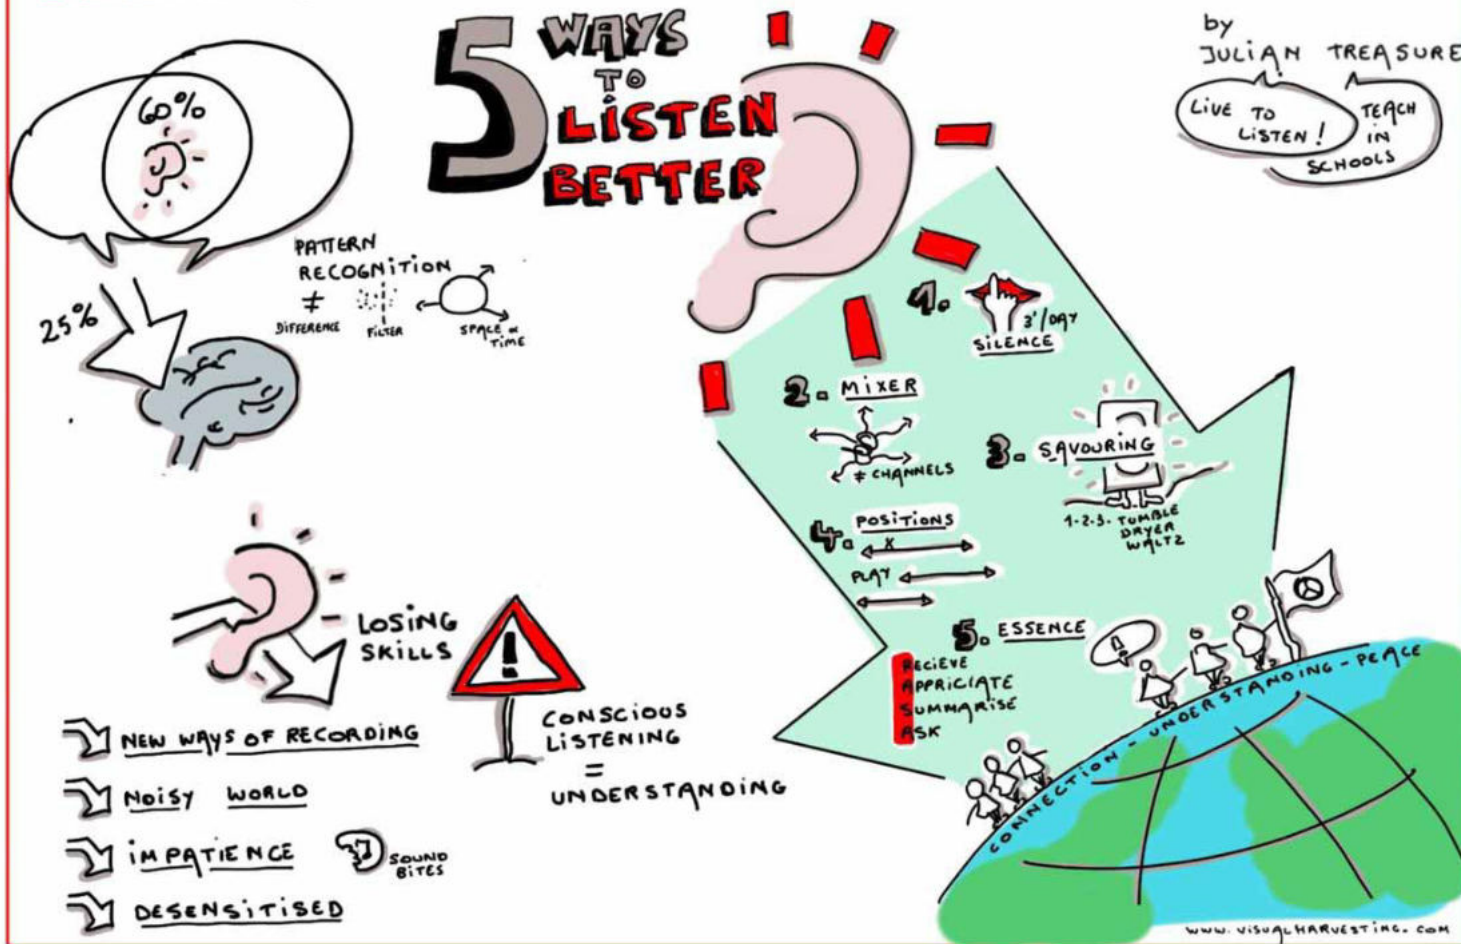 5 WAYS
TO
LISTEN
BETTER
by
JULIAN TREASURE
LIVE TO
LISTEN!
TEACH
IN
SCHOOLS
60%
25%
PATTERN
RECOGNITION
≠
DIFFERENCE
FILTER
SPACE &
TIME
1.
3'/DAY
SILENCE
2. MIXER
≠ CHANNELS
3. SAVOURING
1-2-3- TUMBLE
DRYER
WALTZ
4. POSITIONS
X
PLAY
5. ESSENCE
RECIEVE
APPRICIATE
SUMMARISE
ASK
!
LOSING
SKILLS
!
CONSCIOUS
LISTENING
=
UNDERSTANDING
NEW WAYS OF RECORDING
NOISY WORLD
IMPATIENCE
SOUND
BITES
DESENSITISED
CONNECTION - UNDERSTANDING - PEACE
WWW.VISUALHARVESTING.COM